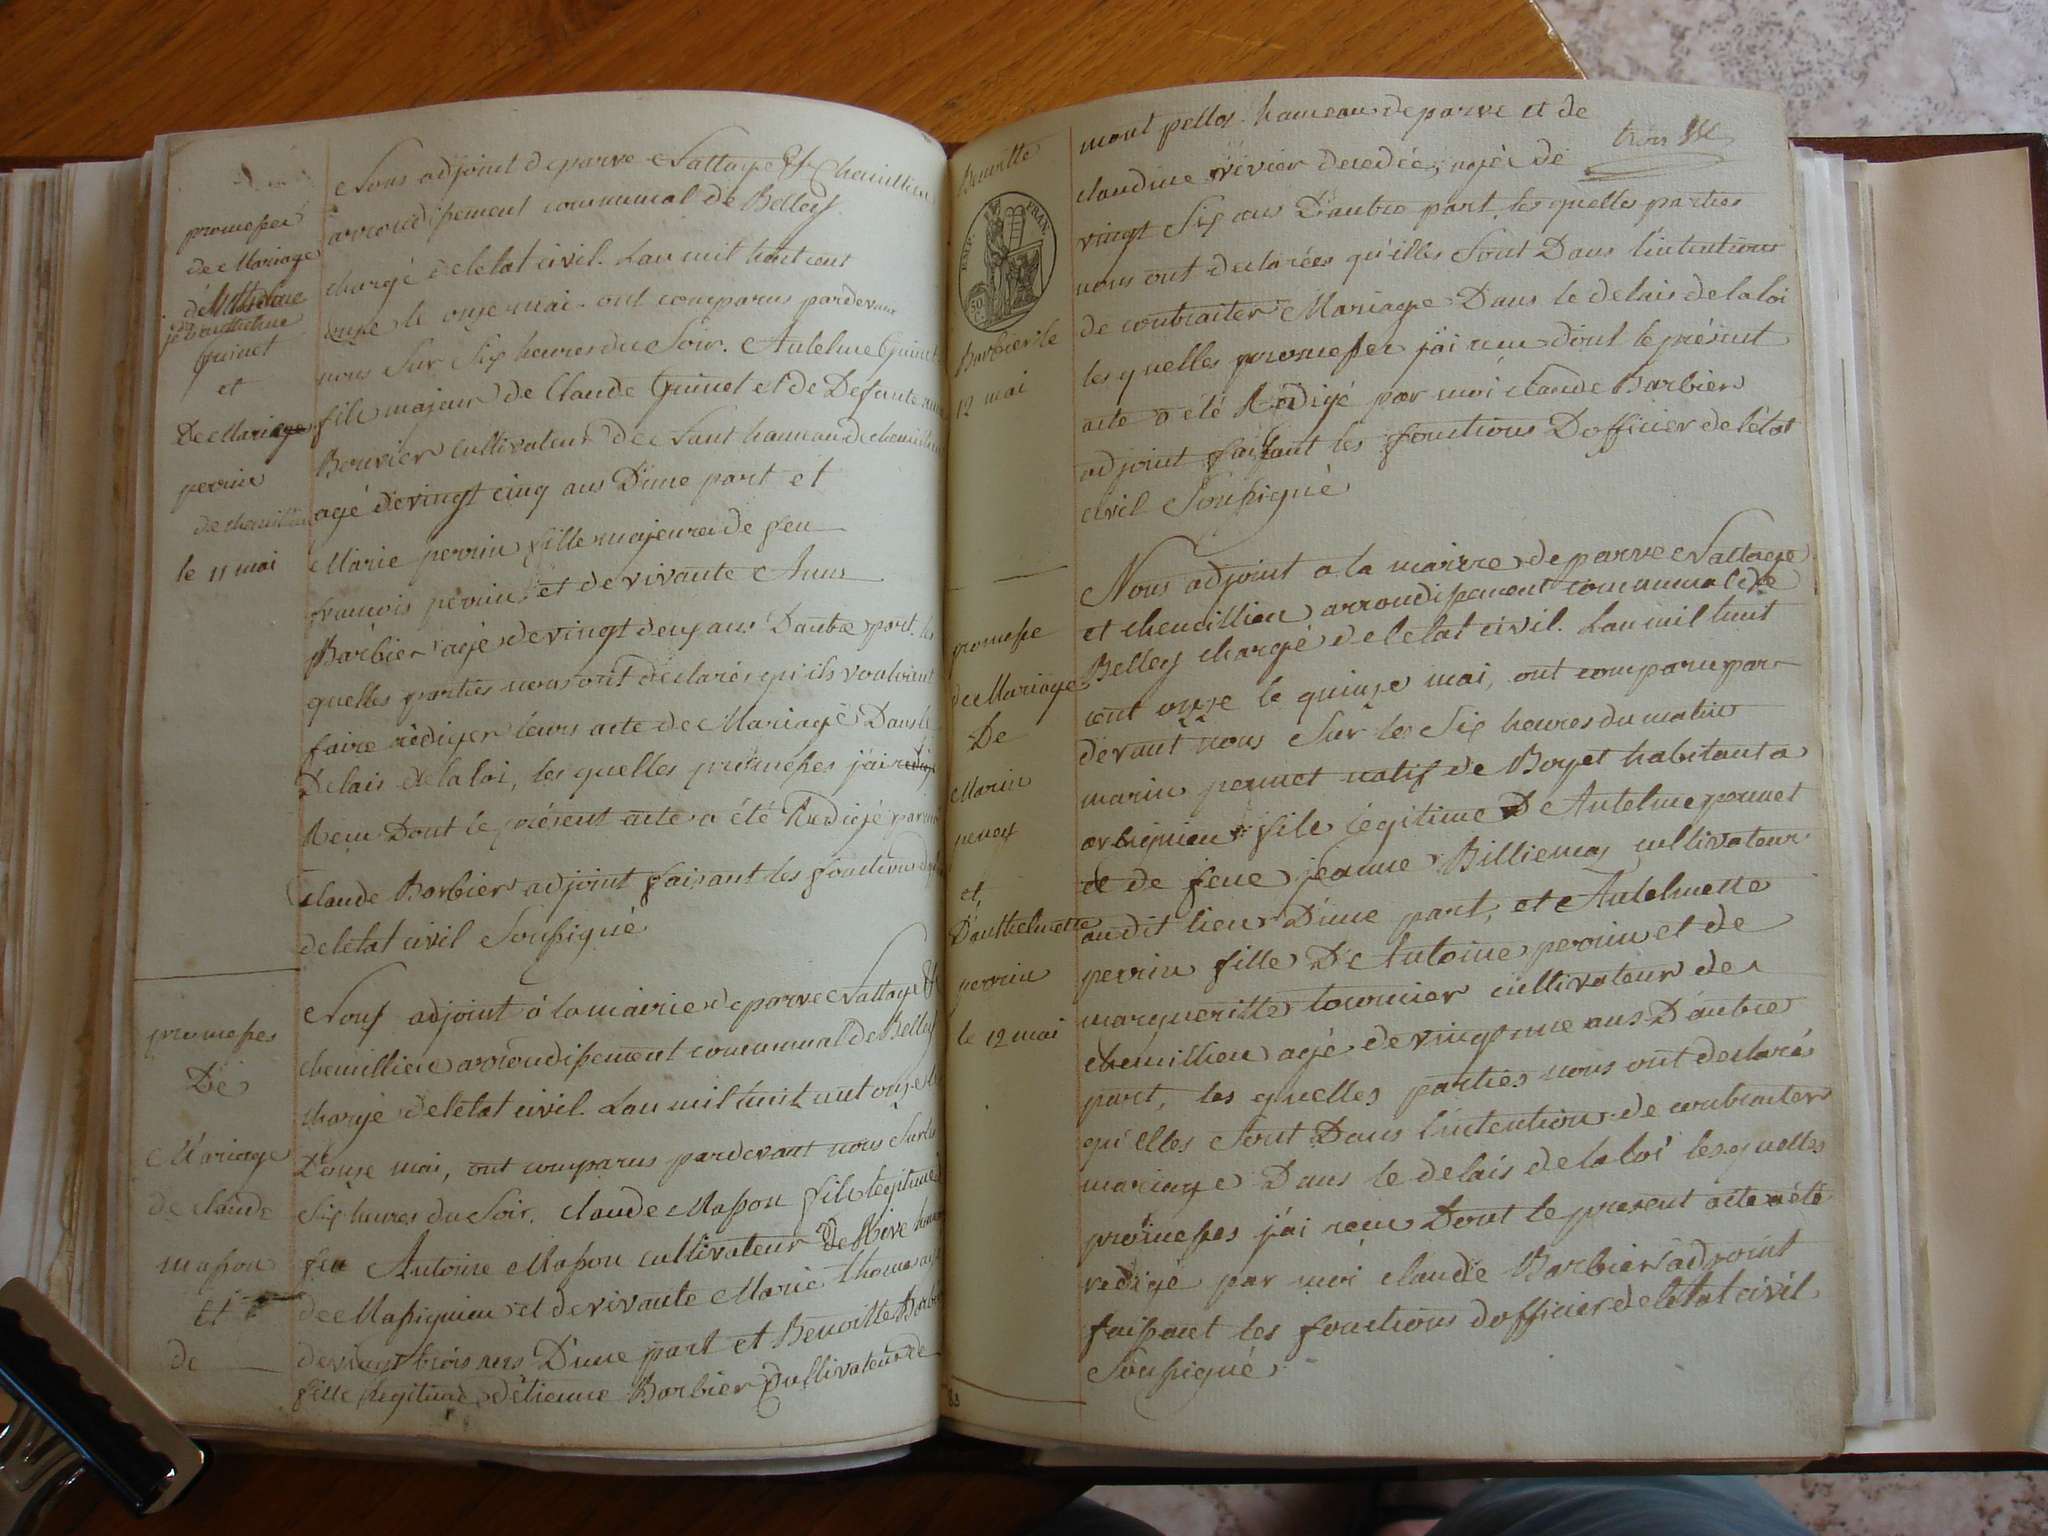 promesse
de Mariage
Guinet
et
De Mariage
perrin
le 11 mai
Nous adjoint de parve Nattage Et Chemillieu
arrondissement communal de Belley
chargé de letat civil. Lan mil huit cent
onze le onze mai. ont comparus pardevant
nous Sur Six heures du Soir. Antelme Guinet
fils majeur de Claude Guinet et de Defunte
Bouvier cultivateur de hameau de
agé de vingt cinq ans D'une part et
Marie perrin fille majeure de feu
francois perrin et de vivante Anne
Barbier agé de vingt deux ans Dautre part. les
quelles parties nous ont declarés qu'ils vouloient
faire rédiger leurs acte de Mariage Dans le
Delais de la loi, les quelles promesses j'ai
Recu Dont le présent acte a été Redigé par moi
Claude Barbier adjoint faisant les fonctions
de letat civil Soussigné
promesses
De
Mariage
de claude
Masson
et
de
Nous adjoint à la mairie de parve Nattage Et
chemillieu arrondissement communal de Belley
chargé de letat civil. Lan mil huit cent onze le
Douze mai, ont comparus pardevant nous Sur les
Six heures du Soir. Claude Masson fils legitime
feu Antoine Masson cultivateur de Rive
de Massignieu et de vivante Marie
de vingt trois ans D'une part et Benoitte Barbier
fille legitime d'etienne Barbier Cultivateur de
Benoitte
EMP. FRAN.
Barbier le
12 mai
mont pellas hameau de parve et de
claudine rivier decedée, agée de
vingt Six ans D'autre part, les quelles parties
nous ont declarées qu'illes Sont Dans l'intentions
de contracter Mariage Dans le delais de la loi
les quelles promesses j'ai recu dont le présent
acte a été Redigé par moi claude Barbier
adjoint faissant les fonctions D'officier de l'état
civil Soussigné
promesse
de Mariage
De
Marin
et
D'anthelmette
perrin
le 12 mai
Nous adjoint a la mairie de parve Nattage
et chemillieu arrondissement communal de
Belley chargé de letat civil. Lan mil huit
cent onze le quinze mai, ont comparu par
devant nous Sur les Six heures du matin
marin pernet natif de et habitant a
arbignieu fils légitime D'Antelme pernet
et de feue jeanne Billiemaz cultivateur
audit lieu D'une part, et Antelmette
perrin fille D'Antoine perrin et de
margueritte tournier cultivateur de
chemillieu agé de vingt une ans D'autre
part, les quelles parties nous ont declaré
qu'elles Sont Dans l'intention de contracter
mariage Dans le delais de la loi lesquelles
promesses j'ai recu Dont le present acte a été
redigé par moi claude Barbier adjoint
faissant les fonctions dofficier de letat civil
Soussigné
83